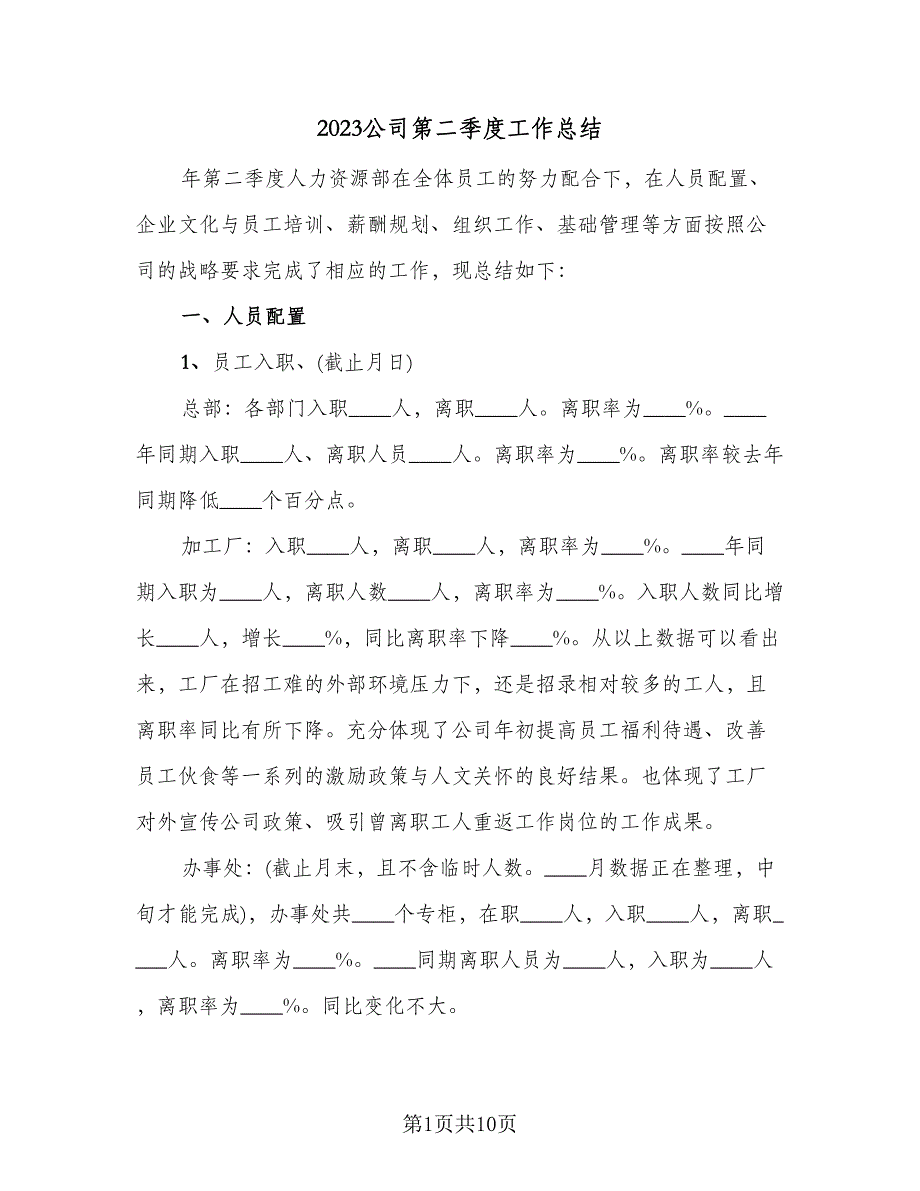 2023公司第二季度工作总结
年第二季度人力资源部在全体员工的努力配合下，在人员配置、
企业文化与员工培训、薪酬规划、组织工作、基础管理等方面按照公
司的战略要求完成了相应的工作，现总结如下：
一、人员配置
1、员工入职、(截止月日)
总部：各部门入职____人，离职____人。离职率为____%。____
年同期入职____人、离职人员____人。离职率为____%。离职率较去年
同期降低____个百分点。
加工厂：入职____人，离职____人，离职率为____%。____年同
期入职为____人，离职人数____人，离职率为____%。入职人数同比增
长____人，增长____%，同比离职率下降____%。从以上数据可以看出
来，工厂在招工难的外部环境压力下，还是招录相对较多的工人，且
离职率同比有所下降。充分体现了公司年初提高员工福利待遇、改善
员工伙食等一系列的激励政策与人文关怀的良好结果。也体现了工厂
对外宣传公司政策、吸引曾离职工人重返工作岗位的工作成果。
办事处：(截止月末，且不含临时人数。____月数据正在整理，中
旬才能完成)，办事处共____个专柜，在职____人，入职____人，离职_
___人。离职率为____%。____同期离职人员为____人，入职为____人
，离职率为____%。同比变化不大。
第1页共10页